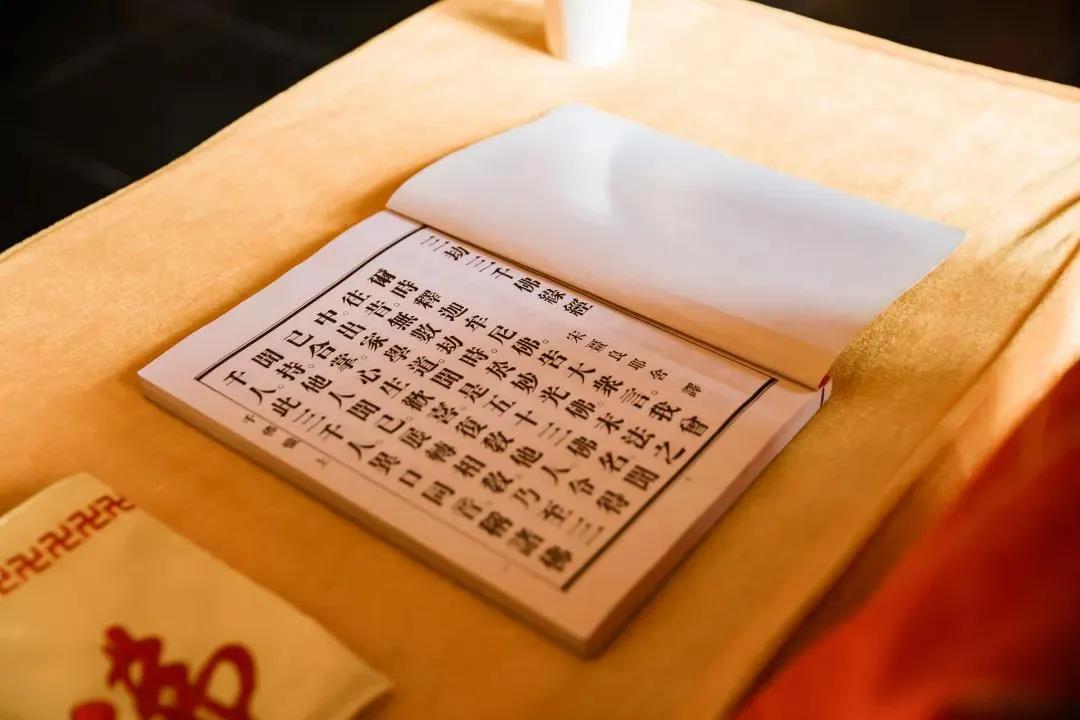 三劫三千佛緣經
宋畺良耶舍譯
爾時釋迦牟尼佛。告大衆言。我曾
往昔無數劫時。於妙光佛末法之
中。出家學道。聞是五十三佛名。聞
已合掌。心生歡喜。復教他人令得
聞持。他人聞已。展轉相教。乃至三
千人。此三千人異口同音。稱諸佛
千佛 上